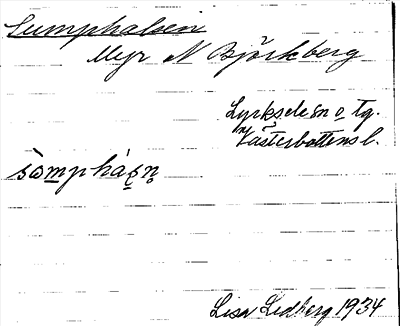 Sumphalsen
Myr N Björkberg
Lycksele sn o tg.
Västerbottens l.
Lisa Lidberg 1934